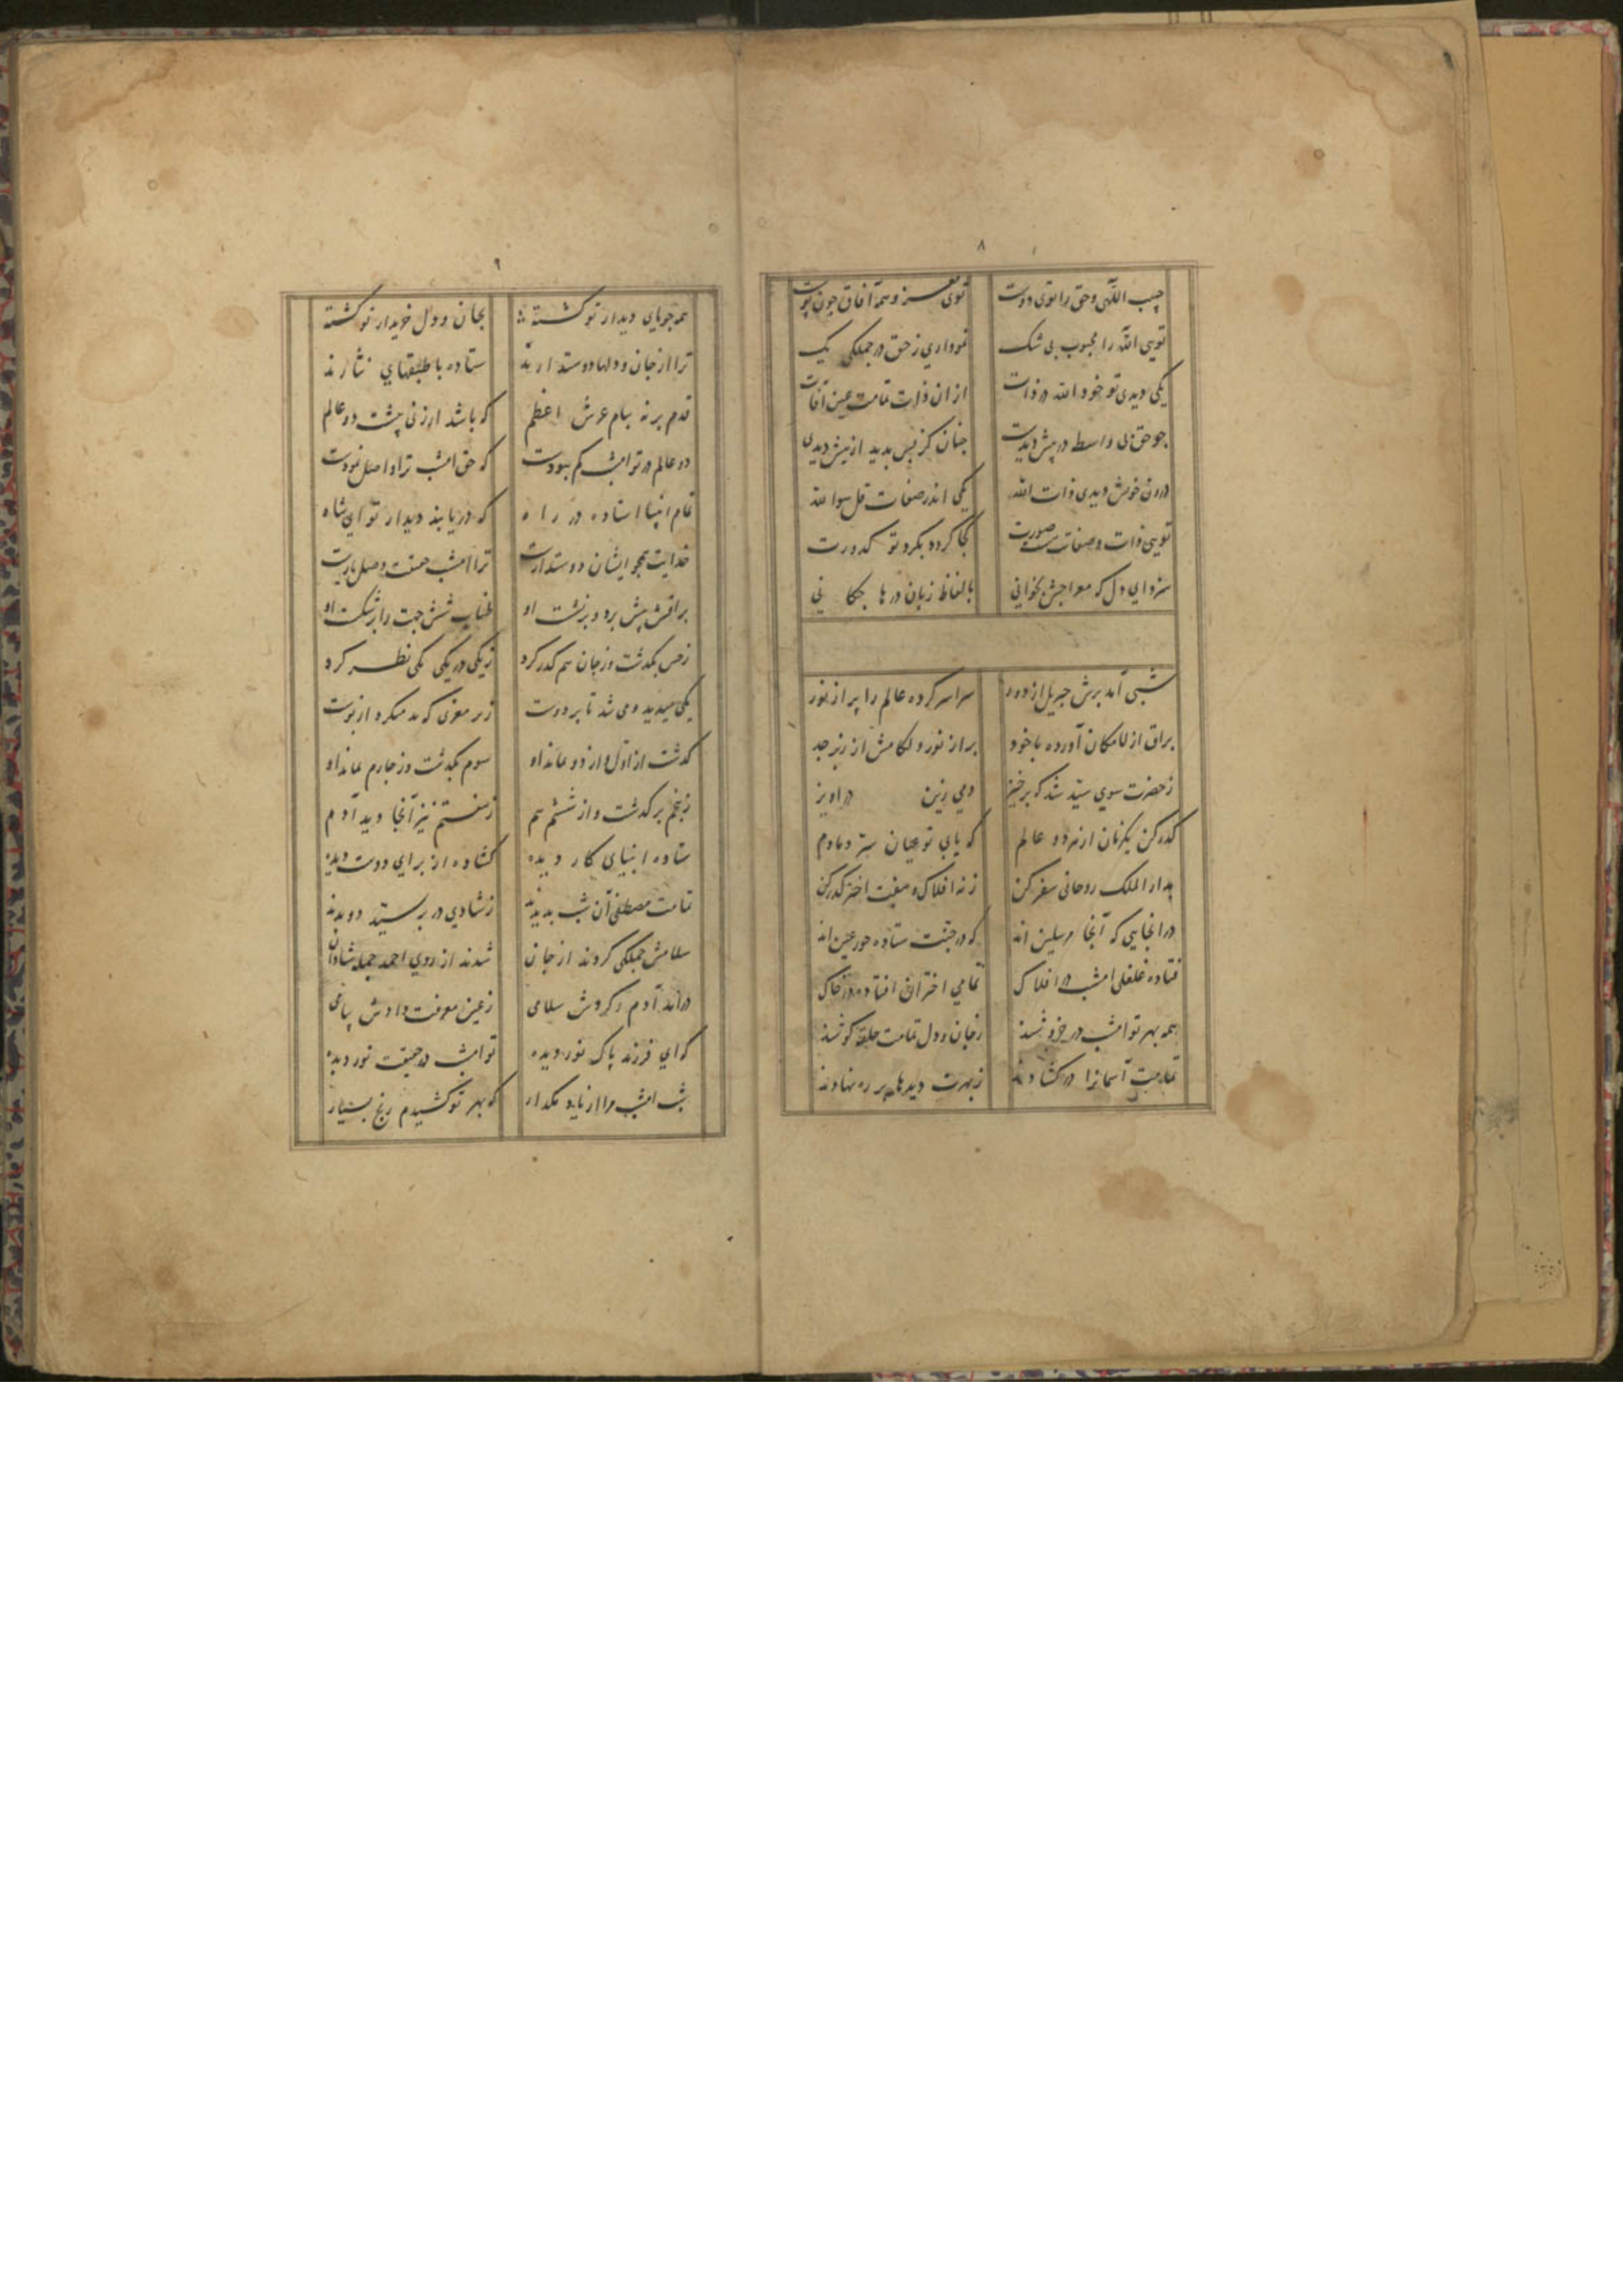 ٨
حبیب اللّهی و حق را توی دوست توی مغز و همه آفاق چون پوست
تویی اللّه را محبوب بی شک نموداری ز حق در جملکی یک
یکی دیدی تو خود اللّه در ذات از ان ذات تمامت عین آیات
جو حق بی واسط در پیش دیدت جنان کز پس بدید از پیش دیدی
درون خویش دیدی ذات اللّه یکی اندر صفات قل هوا للّه
تویی ذات و صفات صورت کجا کردد بکرد تو کدورت
سزد ای دل که معراجش بخوانی بالفاظ زبان درها جکا نی
شبی آمد برش جبریل از دور سراسر کرده عالم را پر از نور
براق از لامکان آورده با خود براز نور و لکامش از زبرجد
ز حضرت سوی سید شد که برخیز دمی زین در اویز
کذر کن یکزمان از هر دو عالم که یابی تو عیان سر دمادم
بدار الملک روحانی سفر کن ز نه افلاک و هفت اختر کذر کن
در انجایی که آنجا مرسلین اند که در جنت ستاده حور عین اند
فتاده غلغلی امشب در افلاک تمامی اختران افتاده در خاک
همه بهر تو امشب در خروشند ز جان و دل تمامت حلقه کوشند
تمامت آسمانرا در کشادند ز بهرت دیدها بر ره نهادند
٩
همه جویای دیدار تو کشته بجان و دل خریدار تو کشته
ترا از جان و دلها دوستدارند ستاده با طبقهای نثارند
قدم بر نه ببام عرش اعظم که باشد ارزنی پیشت دو عالم
دو عالم در تو امشب کم ببودت که حق امشب ترا واصل نمودت
تمام انبیا استاده در راه که دریابند دیدار تو ای شاه
خدایت همجو ایشان دوستدارست ترا امشب حقیقت وصل یارست
براقش پیش برد و برنشست او طناب شش جهت را برشکست او
ز حس بکذشت وز جان هم کذر کرد ز یکی در یکی یکی نظر کرد
یکی میدید و می شد تا بر دوست ز سر مغزی که بد میکرد از پوست
کذشت از اول و از دو نماند او سوم بکذشت وز جارم نماند او
ز پنجم بر کذشت و از ششم هم ز هفتم نیز آنجا دید آدم
ستاده انبیای کار دیده کشاده از برای دوست دیده
تمامت مصطفی آن شب بدیدند ز شادی در بر سید دویدند
سلامش جملکی کردند از جان شدند از روی احمد جمله شادان
درآمد آدم و کردش سلامی ز عین معرفت دادش پیامی
که ای فرزند پاک نور دیده تو امشب در حقیقت نور دیده
شب امشب مرا از یاد مکذار که بهر تو کشیدم رنج بسیار